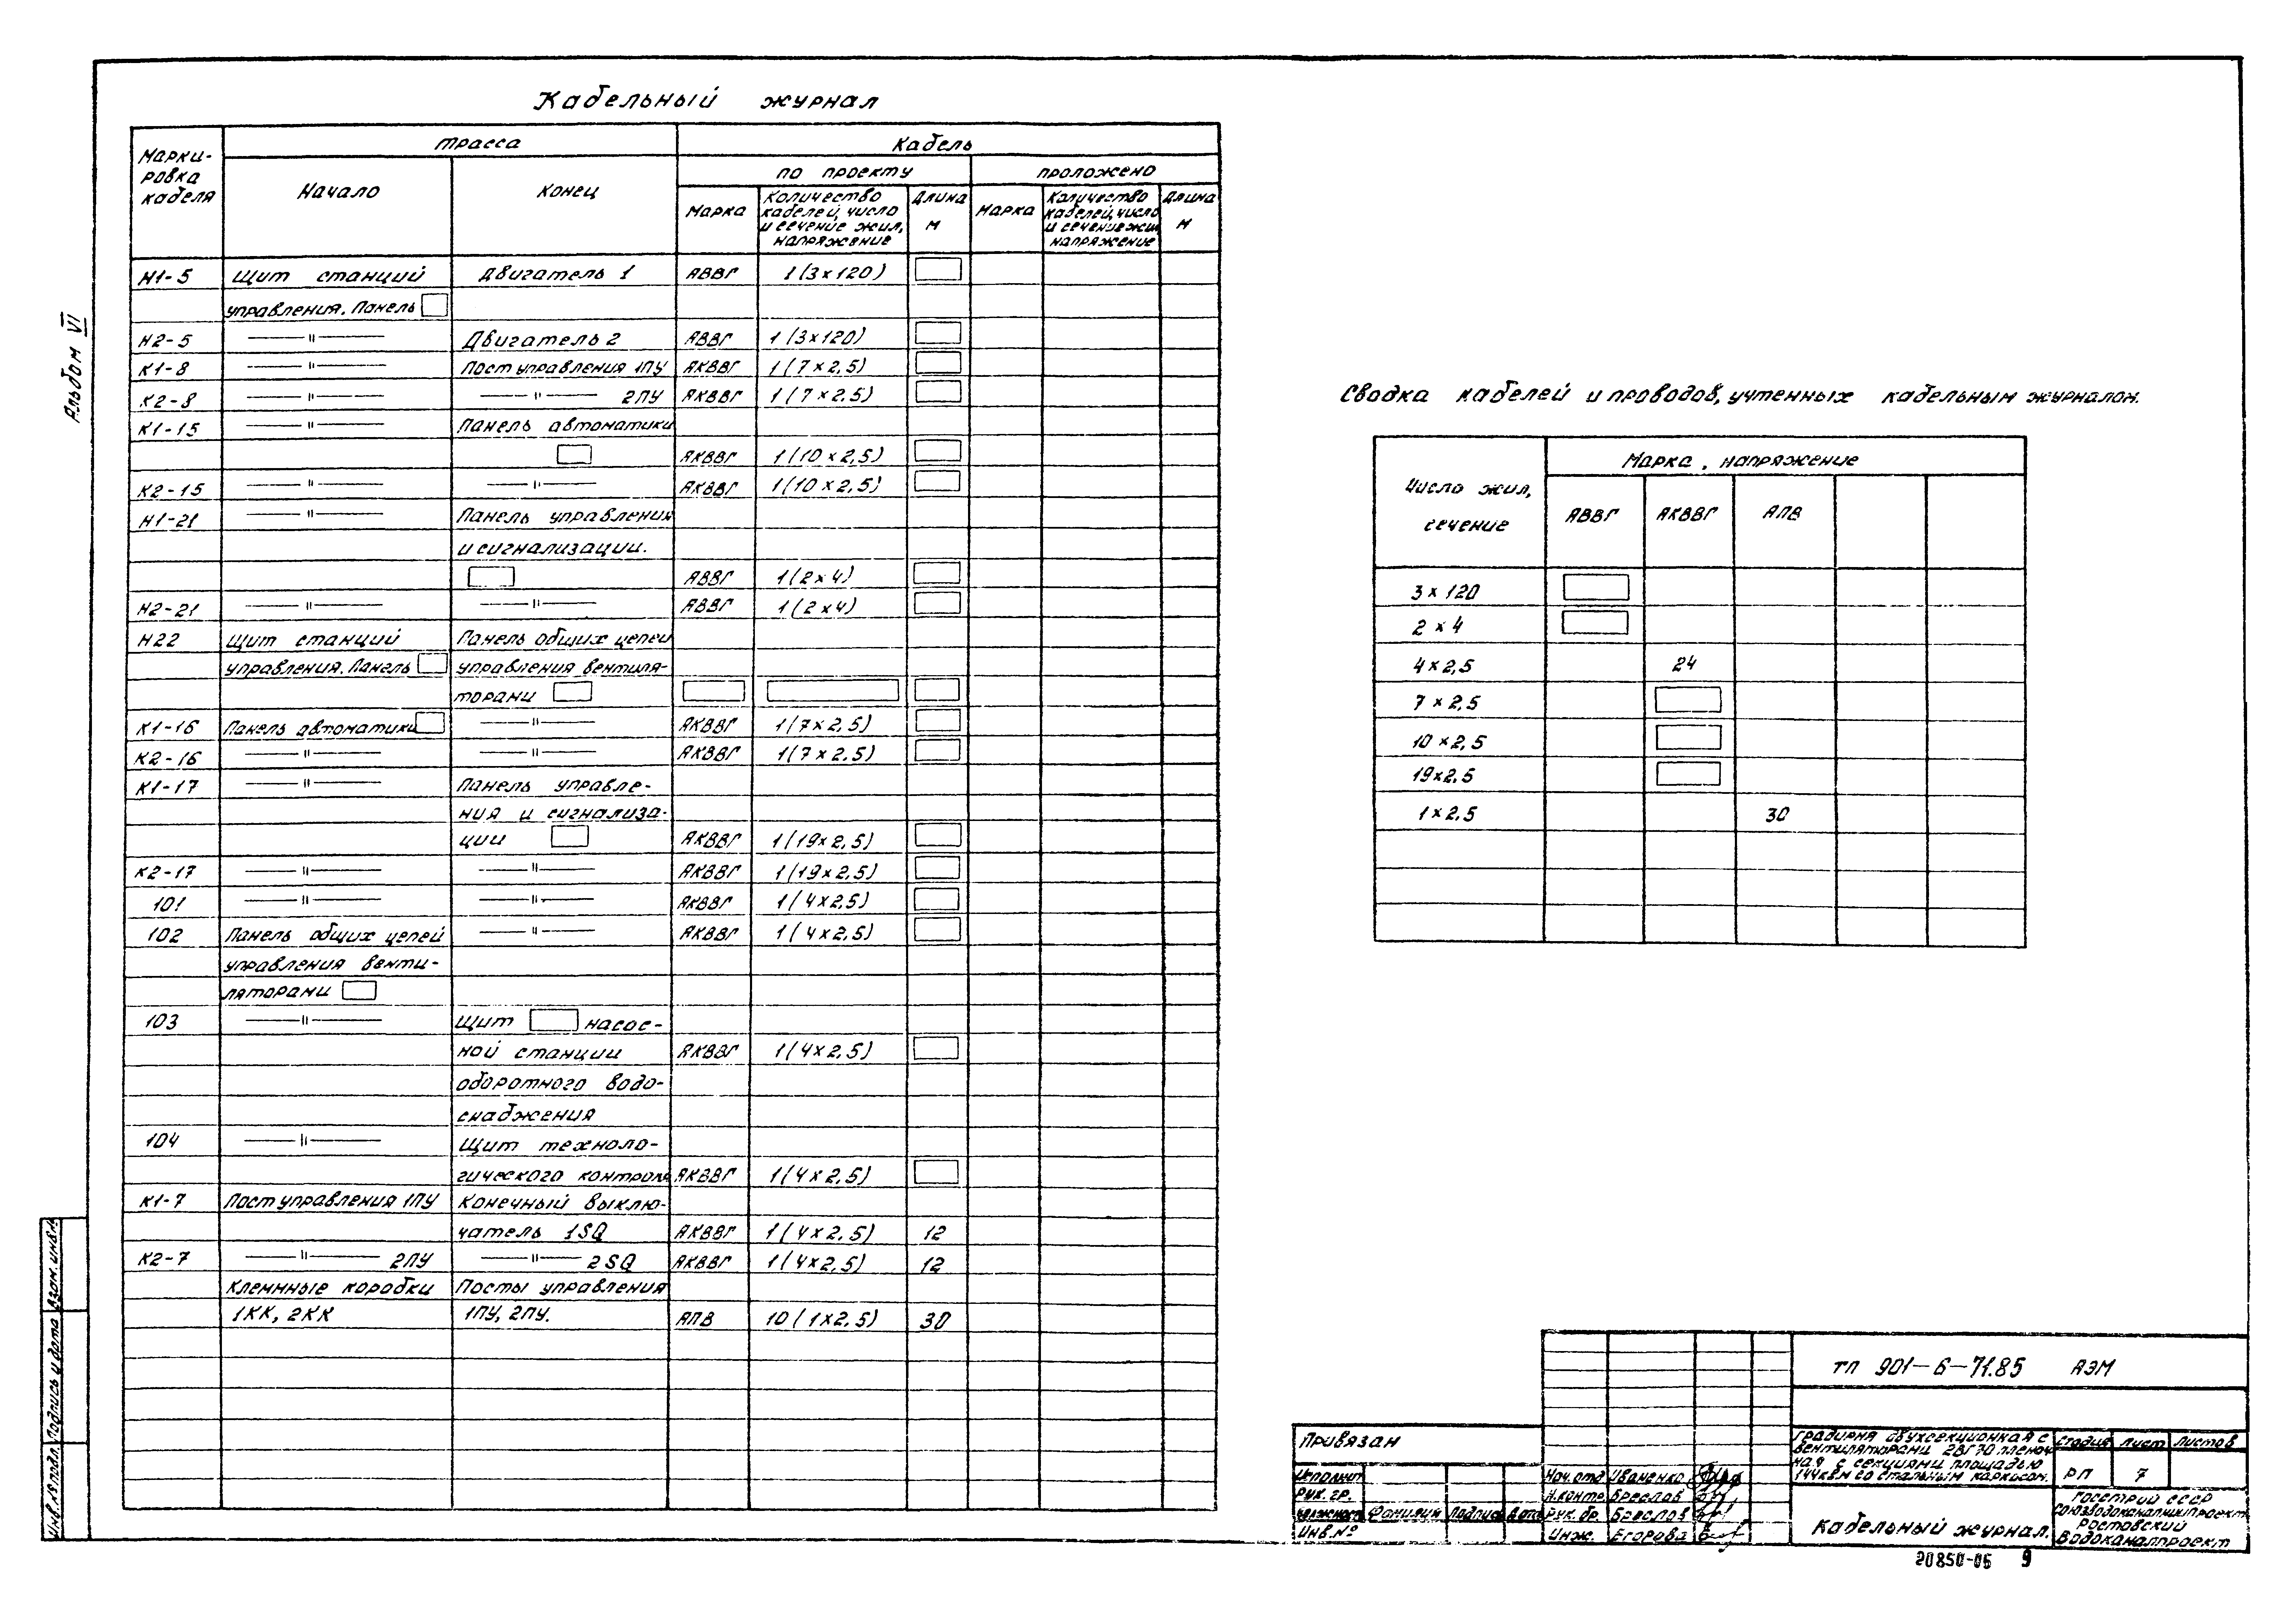 Альбом VI
Кабельный журнал
Марки-
ровка
кабеля
Трасса
Кабель
Начало
Конец
по проекту
проложено
Марка
Количество
кабелей, число
и сечение жил,
напряжение
Длина
м
Марка
Количество
кабелей, число
и сечение жил
напряжение
Длина
м
Н1-5 Щит станций Двигатель 1 АВВГ 1(3×120)
управления. Панель
Н2-5 —"— Двигатель 2 АВВГ 1(3×120)
К1-8 —"— Пост управления 1ПУ АКВВГ 1(7×2,5)
К2-8 —"— —"— 2ПУ АКВВГ 1(7×2,5)
К1-15 —"— Панель автоматики
АКВВГ 1(10×2,5)
К2-15 —"— —"— АКВВГ 1(10×2,5)
Н1-21 —"— Панель управления
и сигнализации.
АВВГ 1(2×4)
Н2-21 —"— —"— АВВГ 1(2×4)
Н22 Щит станций Панель общих цепей
управления. Панель управления вентиля-
торами
К1-16 Панель автоматики —"— АКВВГ 1(7×2,5)
К2-16 —"— —"— АКВВГ 1(7×2,5)
К1-17 —"— Панель управле-
ния и сигнализа-
ции АКВВГ 1(19×2,5)
К2-17 —"— —"— АКВВГ 1(19×2,5)
101 —"— —"— АКВВГ 1(4×2,5)
102 Панель общих цепей —"— АКВВГ 1(4×2,5)
управления венти-
ляторами
103 —"— Щит насос-
ной станции АКВВГ 1(4×2,5)
оборотного водо-
снабжения
104 —"— Щит техноло-
гического контроля АКВВГ 1(4×2,5)
К1-7 Пост управления 1ПУ Конечный выклю-
чатель 1SQ АКВВГ 1(4×2,5) 12
К2-7 —"— 2ПУ —"— 2SQ АКВВГ 1(4×2,5) 12
Клеммные коробки Посты управления
1КК, 2КК 1ПУ, 2ПУ. АПВ 10(1×2,5) 30
Сводка кабелей и проводов, учтенных кабельным журналом.
Число жил,
сечение
Марка, напряжение
АВВГ АКВВГ АПВ
3×120
2×4
4×2,5 24
7×2,5
10×2,5
19×2,5
1×2,5 30
ТП 901-6-71.85 АЭМ
Привязан
Исполнит
Рук. гр.
Должность Фамилия Подпись Дата
Инв. №
Нач. отд Иваненко
Н.контр Бреслов
Рук. бр. Бреслов
Инж. Егорова
Градирня двухсекционная с
вентиляторами 2ВГ70 пленоч
ная с секциями площадью
144кв.м со стальным каркасом.
Стадия Лист Листов
РП 7
Кабельный журнал.
Госстрой СССР
Союзводоканалниипроект
Ростовский
Водоканалпроект
20850-06 9
Инв.№подл. Подпись и дата Взам. инв.№